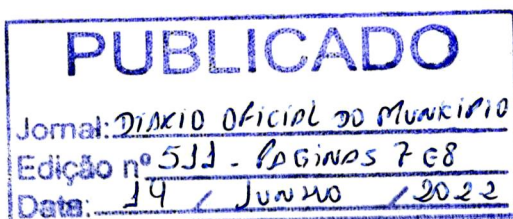 PUBLICADO
Jornal: DIÁRIO OFICIAL DO MUNICÍPIO
Edição nº 511 - PAGINAS 7 E 8
Data: 14 / JUNHO / 2022